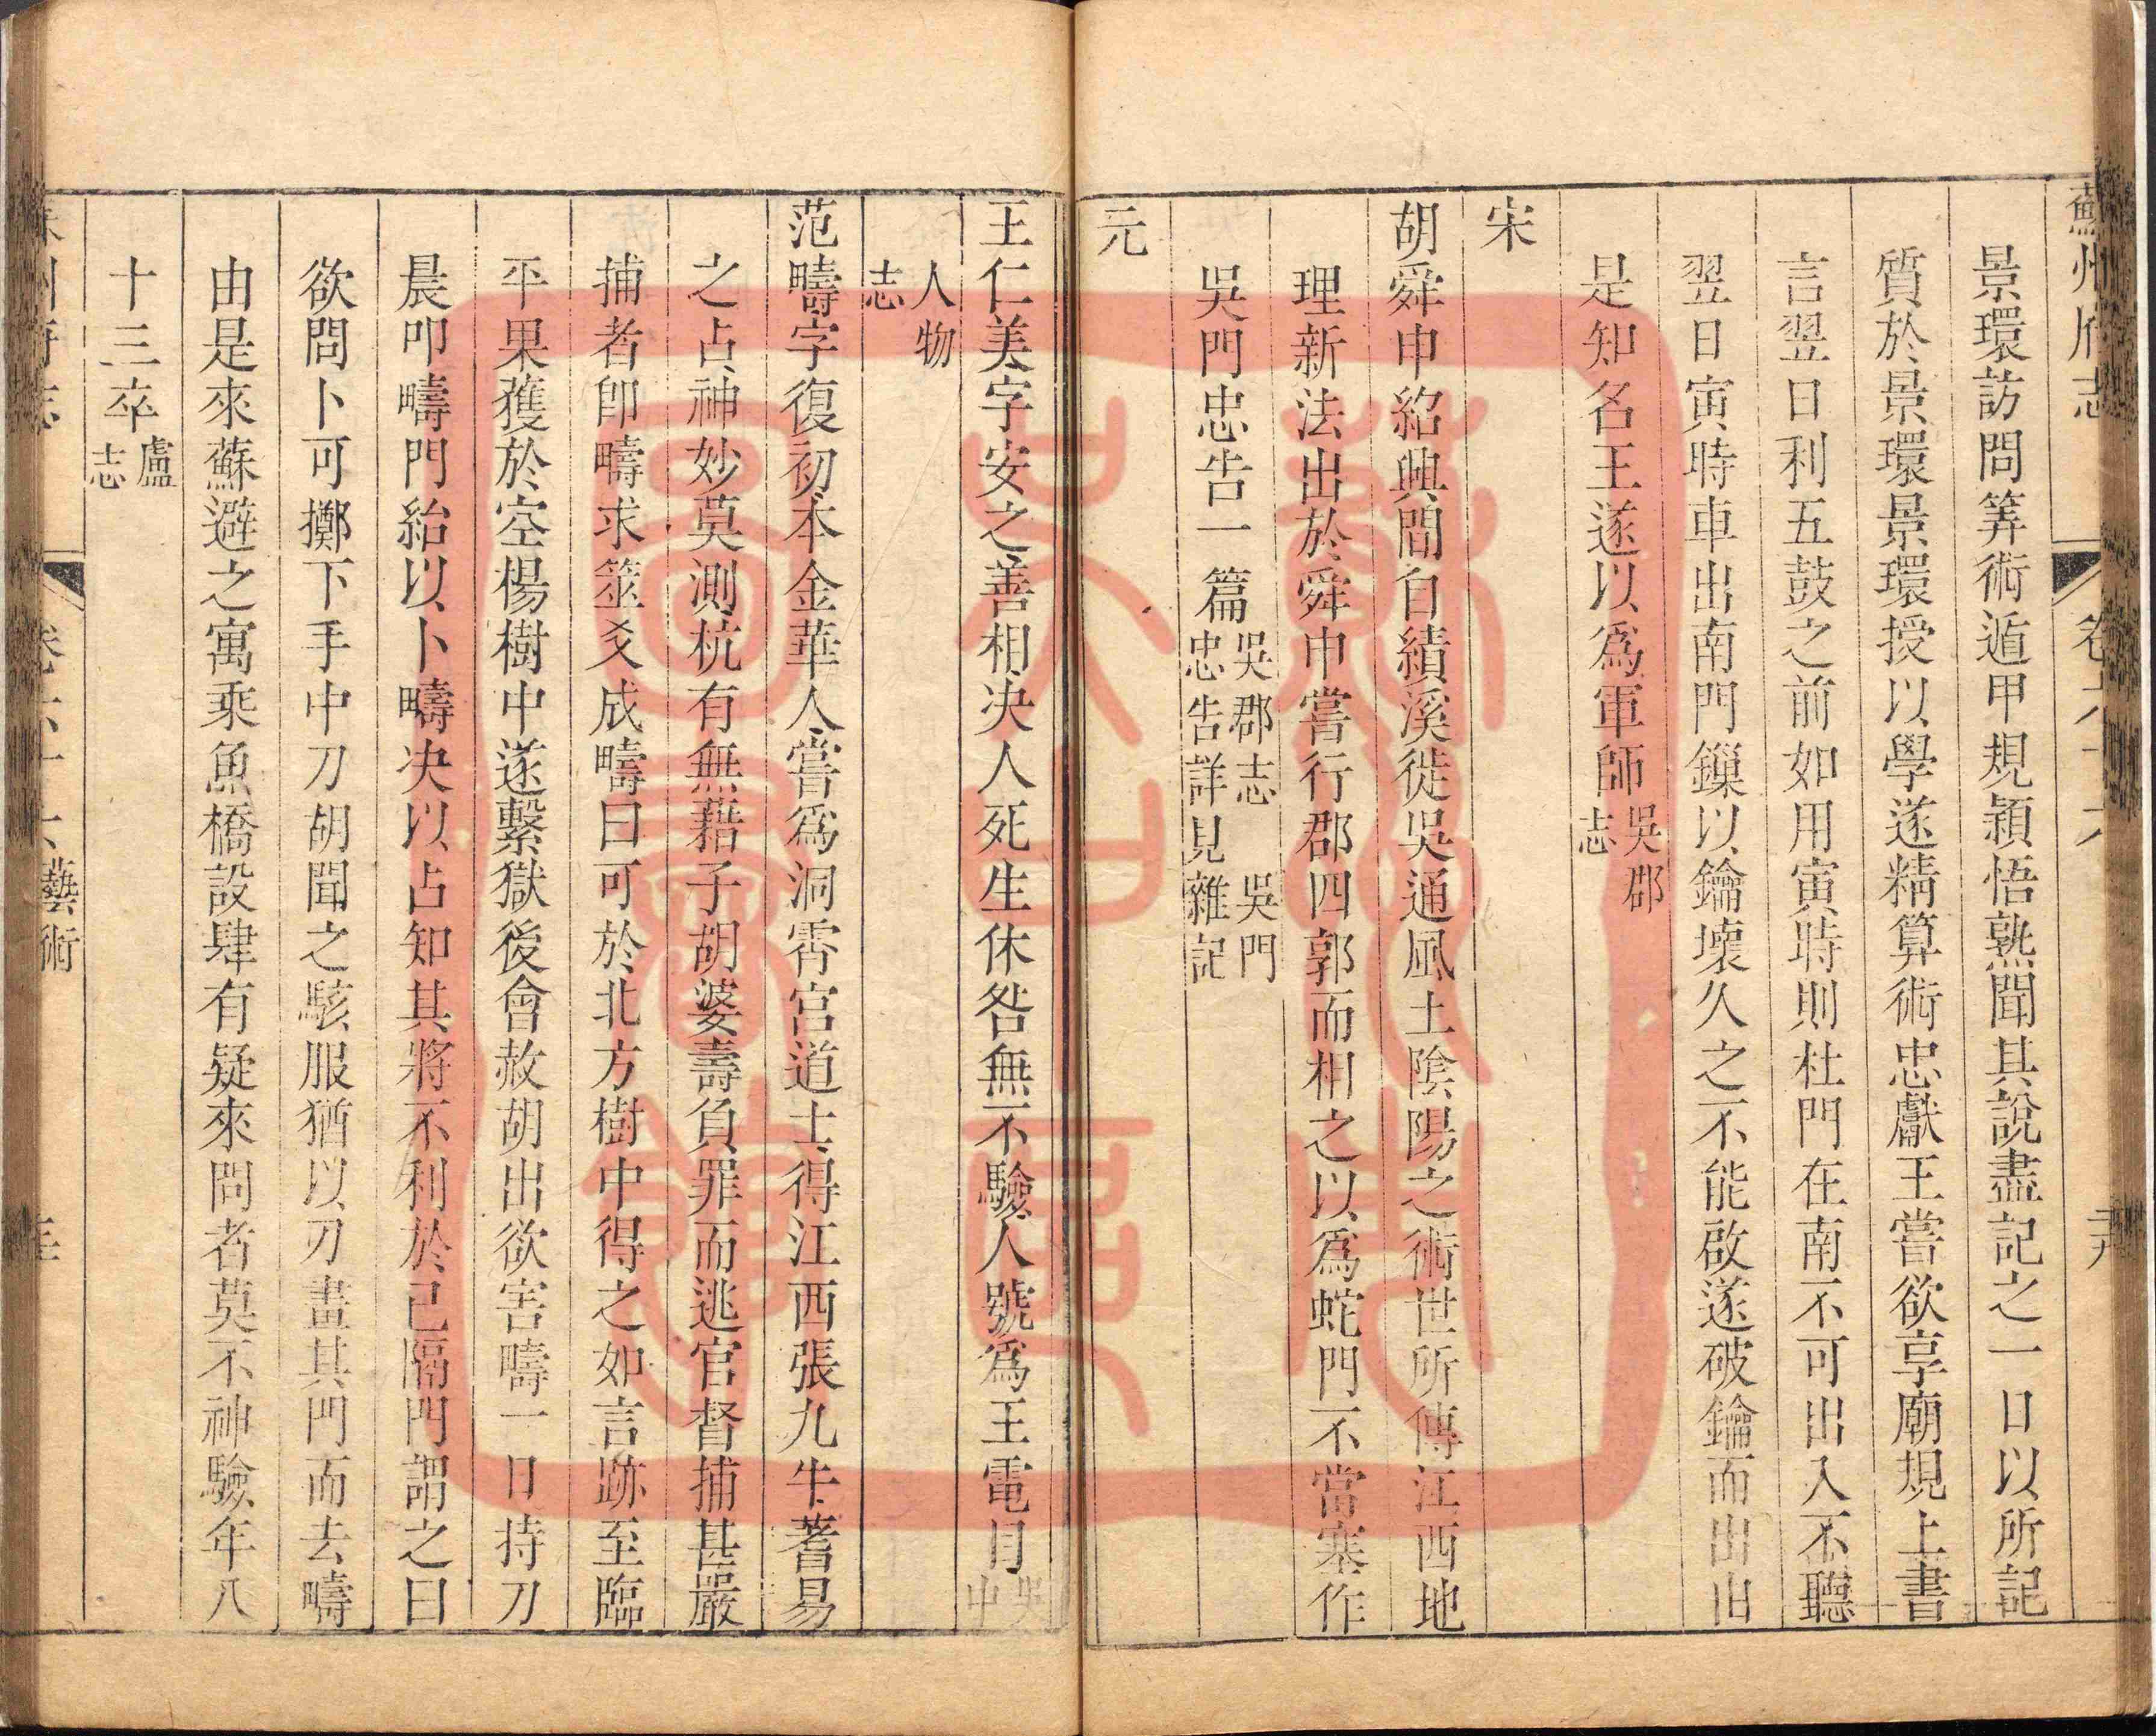 蘇州府志
卷六十六
景環訪問筭術遁甲規穎悟熟聞其說盡記之一日以所記
質於景環景環授以學遂精算術忠獻王嘗欲享廟規上書
言翌日利五鼓之前如用寅時則杜門在南不可出入不聽
翌日寅時車出南門鏁以鑰壞久之不能啟遂破鑰而出由
是知名王遂以爲軍師吳郡志
宋
胡舜申紹興間自績溪徙吳通風土陰陽之術世所傳江西地
理新法出於舜申嘗行郡四郭而相之以爲蛇門不當塞作
吳門忠告一篇吳郡志 吳門忠告詳見雜記
元
王仁美字安之善相決人死生休咎無不驗人號爲王電目吳中
人物志
范疇字復初本金華人嘗爲洞霄宫道士得江西張九牛蓍易
之占神妙莫測杭有無藉子胡婆壽負罪而逃官督捕甚嚴
捕者卽疇求筮爻成疇曰可於北方樹中得之如言跡至臨
平果獲於空楊樹中遂繫獄後會赦胡出欲害疇一日持刀
晨叩疇門紿以卜疇决以占知其將不利於己隔門謂之曰
欲問卜可擲下手中刀胡聞之駭服猶以刃畫其門而去疇
由是來蘇避之寓乘魚橋設肆有疑來問者莫不神驗年八
十三卒盧志
卷六十六 藝術